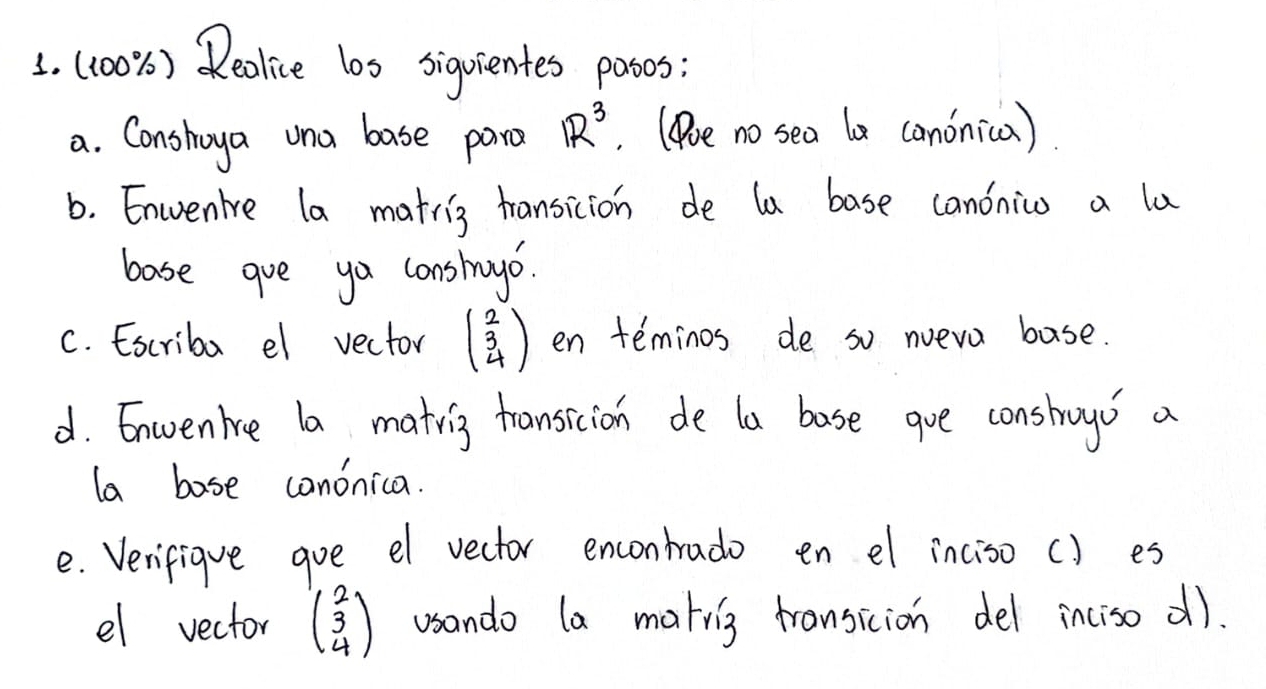 1. (100%) Realice los siguientes pasos:
a. Construya una base para ℝ³. (Que no sea la canónica).
b. Encuentre la matríz transición de la base canónica a la
base que ya construyó.
c. Escriba el vector (2 3 4) en téminos de su nueva base.
d. Encuentre la matríz transición de la base que construyó a
la base canónica.
e. Verifique que el vector encontrado en el inciso c) es
el vector (2 3 4) usando la matríz transición del inciso d).